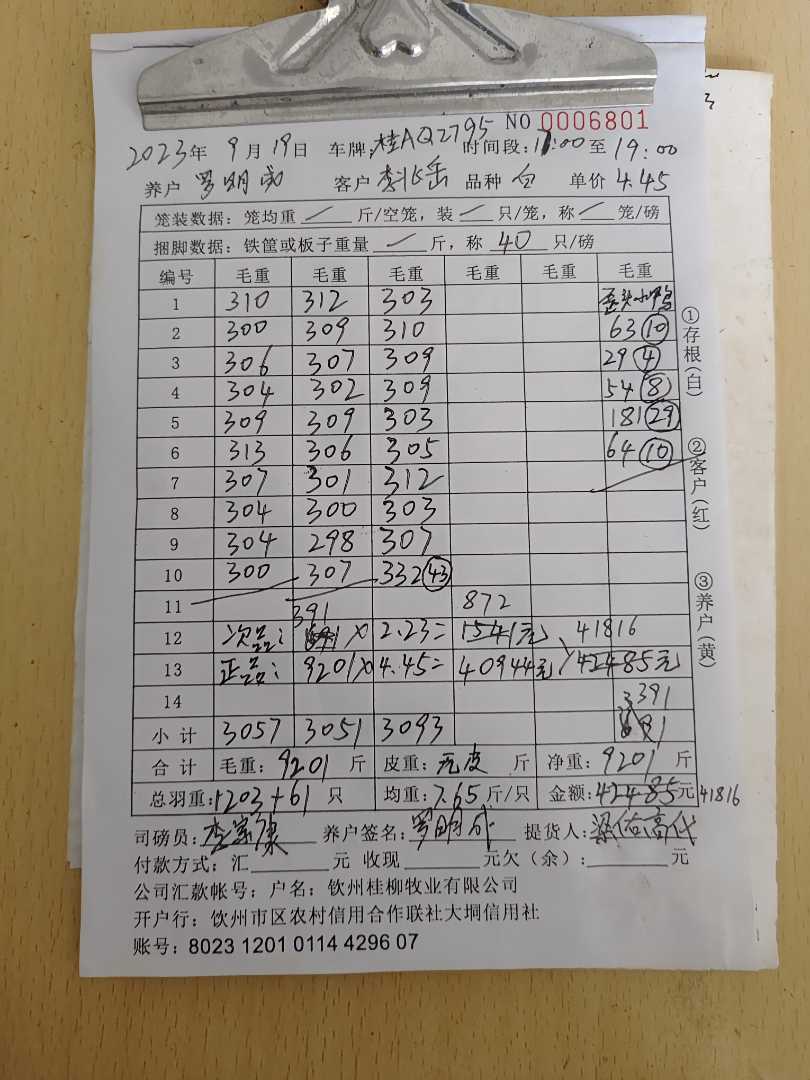 NO 0006801
2023年 9月 19日 车牌:桂AQ2795 时间段:17:00至 19:00
养户 罗明成 客户 品种 白 单价 4.45
笼装数据:笼均重 / 斤/空笼,装 / 只/笼,称 / 笼/磅
捆脚数据:铁筐或板子重量 / 斤,称 40 只/磅
编号 毛重 毛重 毛重 毛重 毛重 毛重
1 310 312 303 歪头小鸭
2 300 309 310 63 10
3 306 307 309 29 4
4 304 302 309 54 8
5 309 309 303 181 29
6 313 306 305 64 10
7 307 301 312
8 304 300 303
9 304 298 307
10 300 307 332 43
11 391 872
12 次品: X 2.23= 1541元 41816
13 正品: 9201X4.45= 40944元 42485元
14 391
小计 3057 3051 3093 691
合计 毛重:9201 斤 皮重:无皮 斤 净重:9201 斤
总羽重:1203+61 只 均重:7.65斤/只 金额:42485元 41816
司磅员:李家康 养户签名:罗明成 提货人:梁佑高代
付款方式:汇 元 收现 元欠(余): 元
公司汇款帐号:户名:钦州桂柳牧业有限公司
开户行:饮州市区农村信用合作联社大垌信用社
账号:8023 1201 0114 4296 07
①存根(白)
②客户(红)
③养户(黄)